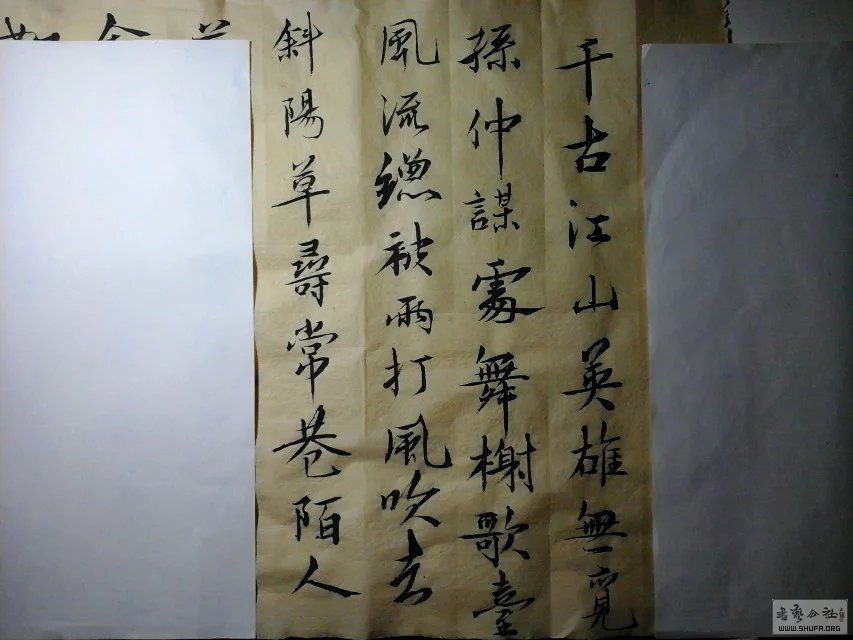 千古江山英雄無覓
孫仲謀處舞榭歌臺
風流總被雨打風吹去
斜陽草尋常巷陌人
WWW.SHUFA.ORG